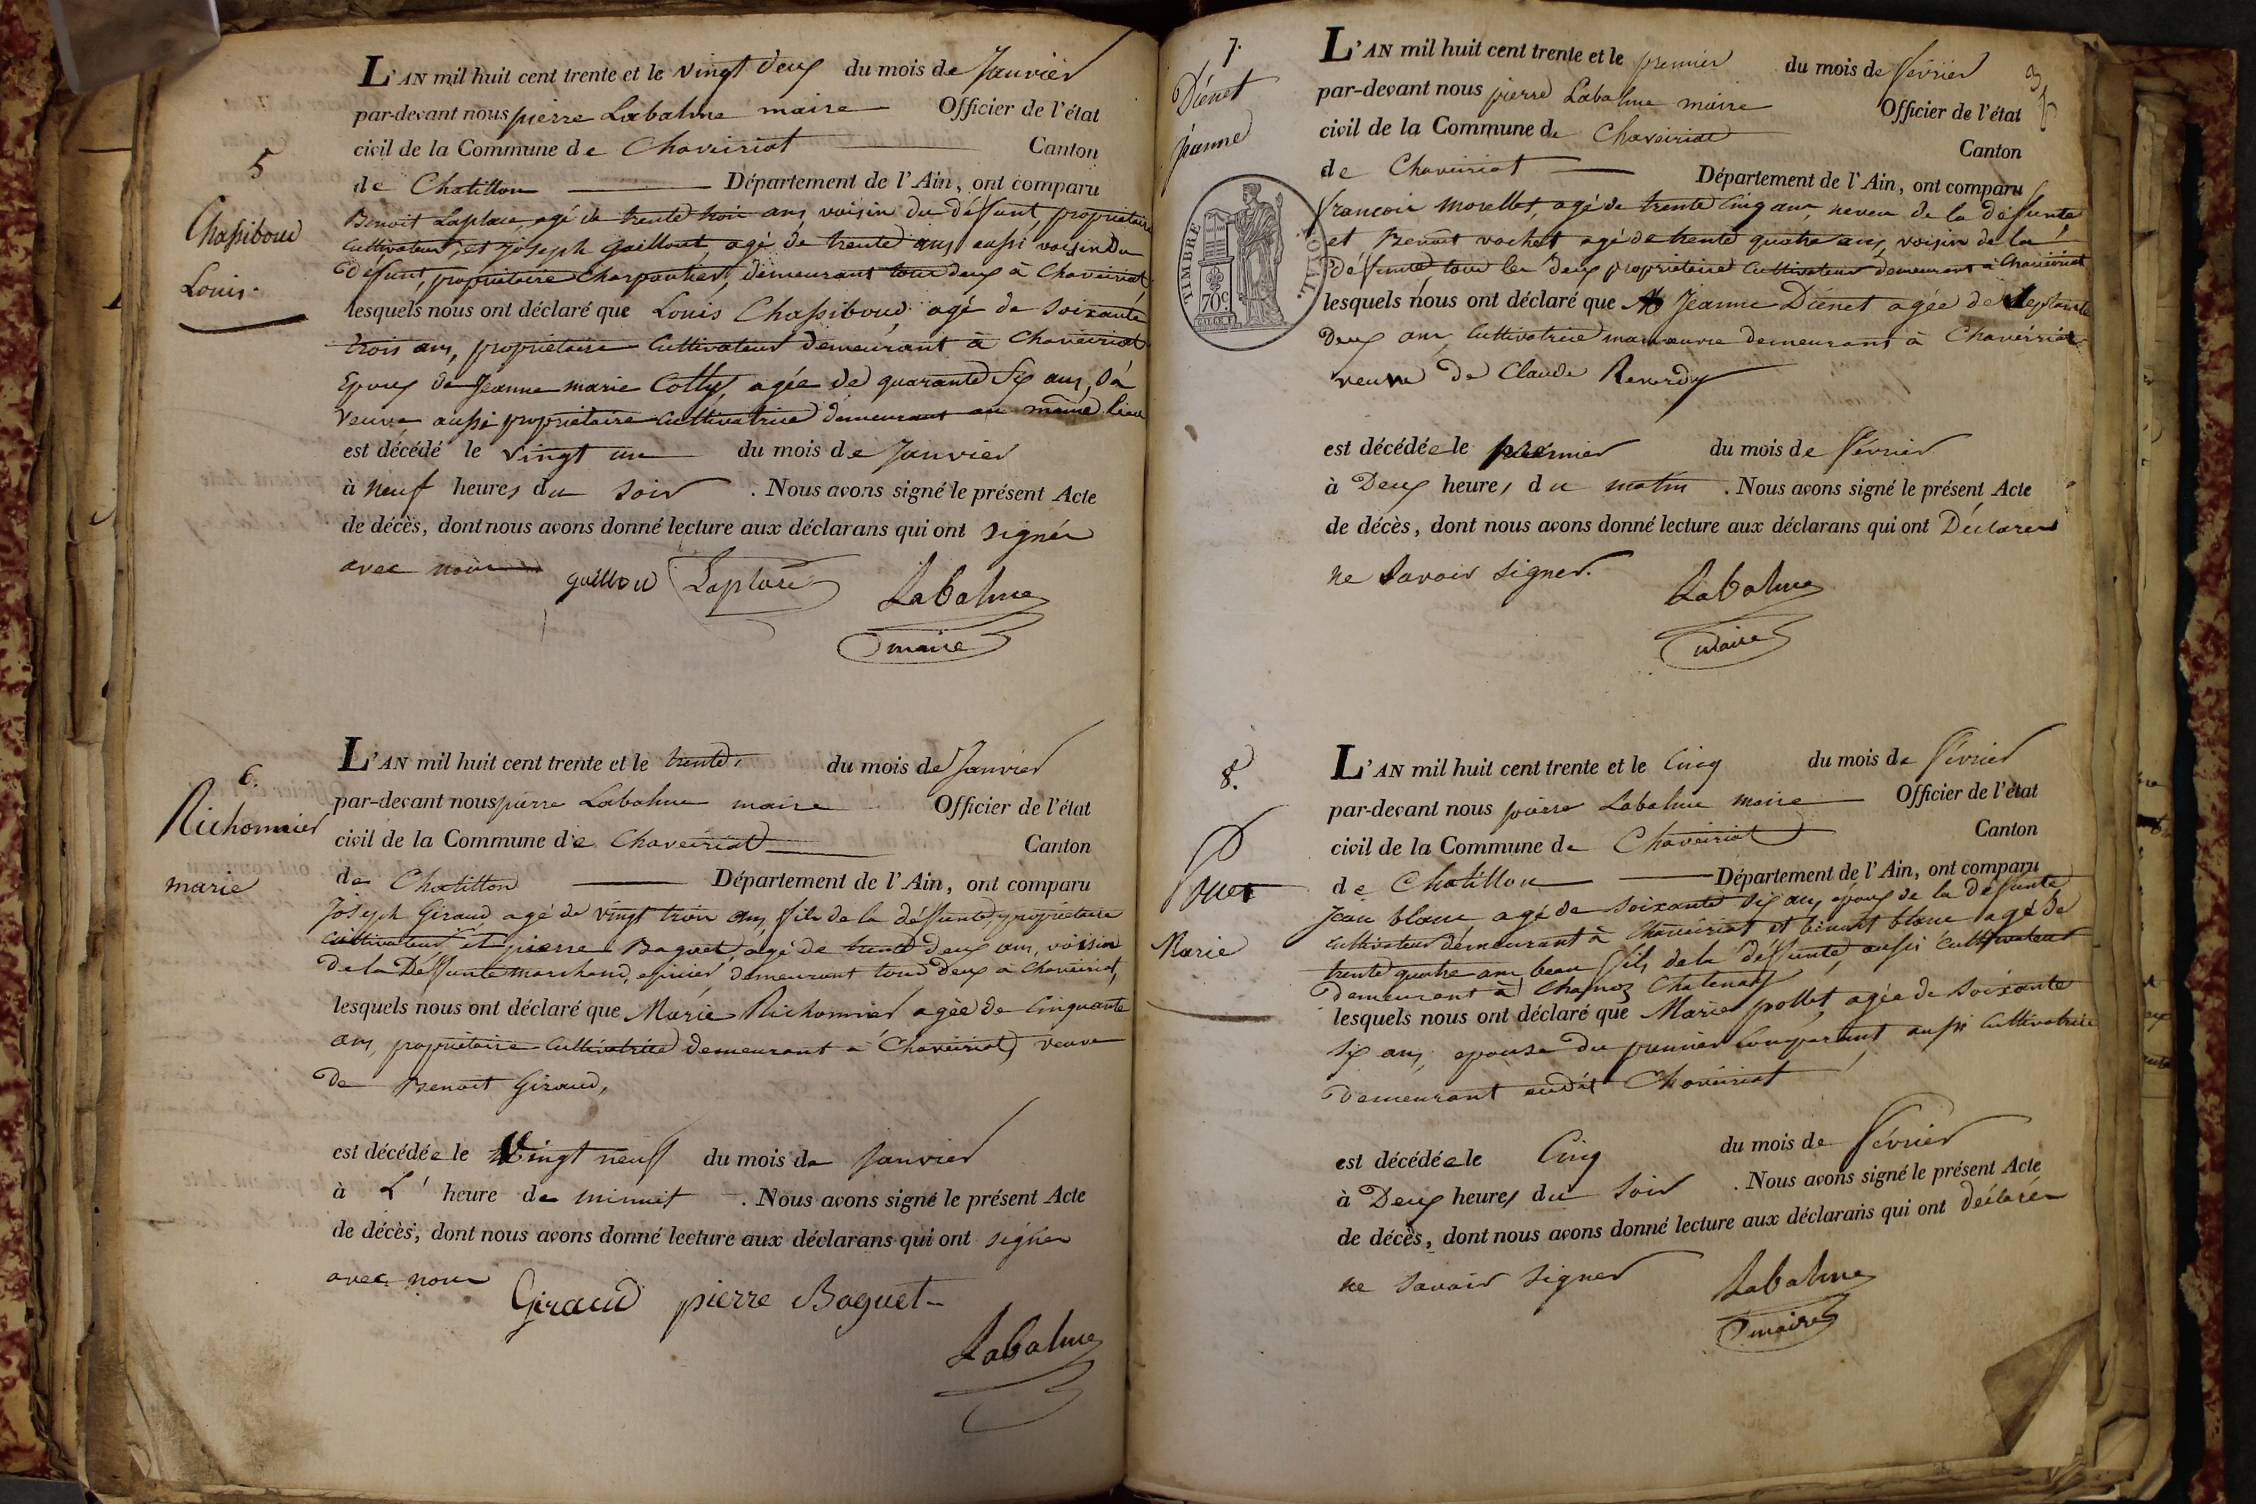 5
Chassiboud
Louis.
L'AN mil huit cent trente et le vingt deux du mois de Janvier
par-devant nous pierre Labalme maire Officier de l'état
civil de la Commune de Chaveiriat Canton
de Chatillon Département de l'Ain, ont comparu
Benoit Laplace, agé de trente trois ans, voisin du défunt, propriétaire
cultivateur, et Joseph Guillout, agé de trente ans, aussi voisin du
défunt, propriétaire charpentier, demeurant tous deux à Chaveiriat
lesquels nous ont déclaré que Louis Chassiboud, agé de soixante
trois ans, propriétaire cultivateur demeurant à Chaveiriat
Epoux de Jeanne marie agée de quarante six ans, sa
veuve aussi propriétaire cultivatrice demeurant au même lieu
est décédé le vingt un du mois de Janvier
à neuf heures du soir . Nous avons signé le présent Acte
de décès, dont nous avons donné lecture aux déclarans qui ont signés
avec nous guillou Laplace Labalme
maire
6.
Richonnier
marie
L'AN mil huit cent trente et le trente du mois de Janvier
par-devant nous pierre Labalme maire Officier de l'état
civil de la Commune de Chaveiriat Canton
de Chatillon Département de l'Ain, ont comparu
Joseph Giraud agé de vingt trois ans, fils de la défunte, propriétaire
cultivateur et pierre Baguet, agé de trente deux ans, voisin
de la Défunte marchand, epicier demeurant tous deux à Chaveiriat,
lesquels nous ont déclaré que Marie Richonnier agée de Cinquante
ans, propriétaire cultivatrice demeurant à Chaveiriat, veuve
de Benoit Giraud,
est décédée le Vingt neuf du mois de Janvier
à L' heure de minuit . Nous avons signé le présent Acte
de décès, dont nous avons donné lecture aux déclarans qui ont signer
avec nous Giraud pierre Baguet
Labalme
7.
Diénet
jeanne
TIMBRE ROYAL.
70c
L'AN mil huit cent trente et le premier du mois de février
par-devant nous pierre Labalme maire Officier de l'état
civil de la Commune de Chaveiriat Canton
de Chaveiriat Département de l'Ain, ont comparu
francois Morellet, agé de trente cinq ans, neveu de la défunte
et Benoit vochet agé de trente quatre ans, voisin de la
défunte tous les deux propriétaires Cultivateurs demeurant à Chaveiriat
lesquels nous ont déclaré que Jeanne Diénet agée de septante
Deux ans, Cultivatrice manœuvre demeurant à Chavériat
veuve de Claude Reverdy
est décédée le premier du mois de février
à Deux heures du matin . Nous avons signé le présent Acte
de décès, dont nous avons donné lecture aux déclarans qui ont Déclarer
ne Savoir signer. Labalme
maire
8.
Marie
L'AN mil huit cent trente et le Cinq du mois de février
par-devant nous pierre Labalme maire Officier de l'état
civil de la Commune de Chaveiriat Canton
de Chatillon Département de l'Ain, ont comparu
Jean blanc, agé de soixante six ans, époux de la défunte
cultivateur demeurant à Chaveiriat et benoit blanc agé de
trente quatre ans, beau fils de la défunte, aussi cultivateur
demeurant à Chanoz Chatenay
lesquels nous ont déclaré que Marie pollet, agée de soixante
six ans, epouse du premier comparant, aussi cultivatrice
demeurant audit Chaveiriat
est décédée le Cinq du mois de février
à Deux heures du soir . Nous avons signé le présent Acte
de décès, dont nous avons donné lecture aux déclarans qui ont déclarér
ne savoir signer Labalme
maire